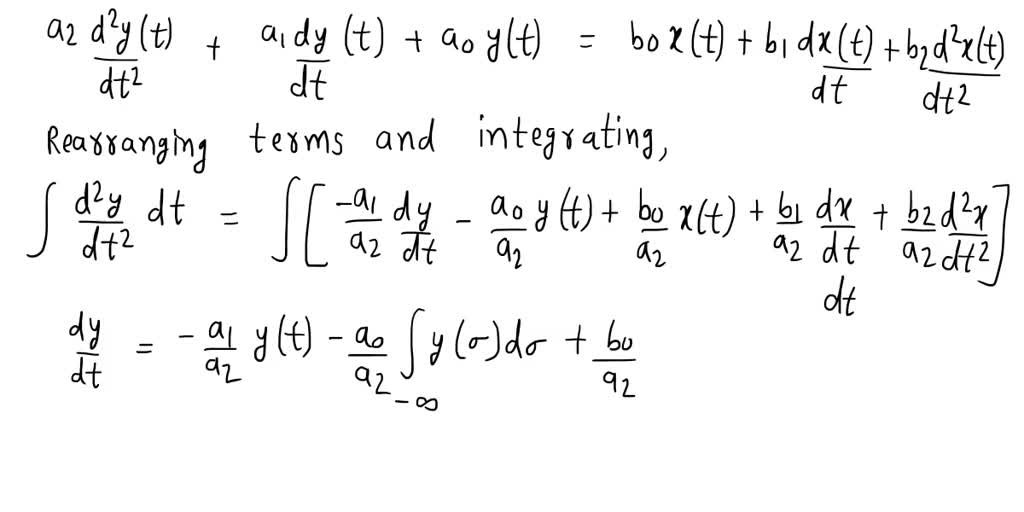 a2 d²y(t)/dt² + a1 dy(t)/dt + a0 y(t) = b0 x(t) + b1 dx(t)/dt + b2 d²x(t)/dt²
Rearranging terms and integrating,
∫ d²y/dt² dt = ∫[ -a1/a2 dy/dt - a0/a2 y(t) + b0/a2 x(t) + b1/a2 dx/dt + b2/a2 d²x/dt² ]
dt
dy/dt = - a1/a2 y(t) - a0/a2 ∫_-∞ y(σ)dσ + b0/a2